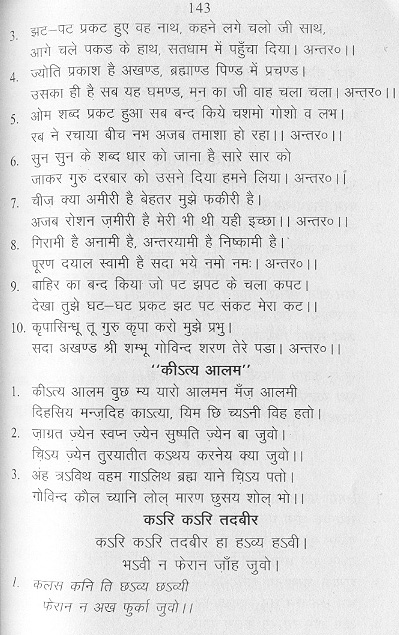 143
3. झट–पट प्रकट हुए वह नाथ, कहने लगे चलो जी साथ,
आगे चले पकड के हाथ, सतधाम में पहुँचा दिया। अन्तर०।।
4. ज्योति प्रकाश है अखण्ड, ब्रह्माण्ड पिण्ड में प्रचण्ड।
उसका ही है सब यह घमण्ड, मन का जी वाह चला चला। अन्तर०।।
5. ओम शब्द प्रकट हुआ सब बन्द किये चशमो गोशो व लभ।
रब ने रचाया बीच नभ अजब तमाशा हो रहा।। अन्तर०।।
6. सुन सुन के शब्द धार को जाना है सारे सार को
जाकर गुरु दरबार को उसने दिया हमने लिया। अन्तर०।।
7. चीज क्या अमीरी है बेहतर मुझे फकीरी है।
अजब रोशन ज़मीरी है मेरी भी थी यही इच्छा।। अन्तर०।।
8. गिरामी है अनामी है, अन्तरयामी है निष्कामी है।
पूरण दयाल स्वामी है सदा भये नमो नमः। अन्तर०।।
9. बाहिर का बन्द किया जो पट झपट के चला कपट।
देखा तुझे घट–घट प्रकट झट पट संकट मेरा कट।।
10. कृपासिन्धू तू गुरु कृपा करो मुझे प्रभु।
सदा अखण्ड श्री शम्भू गोविन्द शरण तेरे पडा। अन्तर०।।
‘‘कीऽत्य आलम’’
1. कीऽत्य आलम वुछ म्य यारो आलमन मँज़ आलमी
दिहसिय मन्ज़दिह काऽत्या, यिम छि च्यऽनी विह हतो।
2. जाग्रत ज़्येन स्वप्न ज़्येन सुष्पति ज़्येन बा जुवो।
चिऽय ज़्येन तुरयातीत कऽथय करनेय क्या जुवो।।
3. अंह त्रऽविथ वहम गाऽलिथ ब्रह्म याने चिऽय पतो।
गोविन्द कौल च्यानि लोल् मारण छुसय शोल् भो।।
कऽरि कऽरि तदबीर
कऽरि कऽरि तदबीर हा हऽव्य हऽवी।
भऽवी न फेरान जाँह जुवो।
1. कलस कनि ति छऽव्य छऽव्यी
फेरान न अख फुर्का जुवो।।